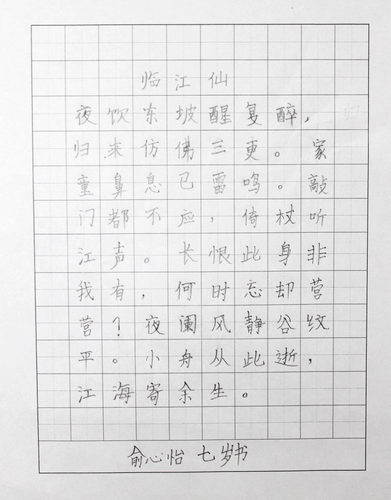 临江仙
夜饮东坡醒复醉，
归来仿佛三更。家
童鼻息已雷鸣。敲
门都不应，倚杖听
江声。长恨此身非
我有，何时忘却营
营？夜阑风静谷纹
平。小舟从此逝，
江海寄余生。
俞心怡 七岁书